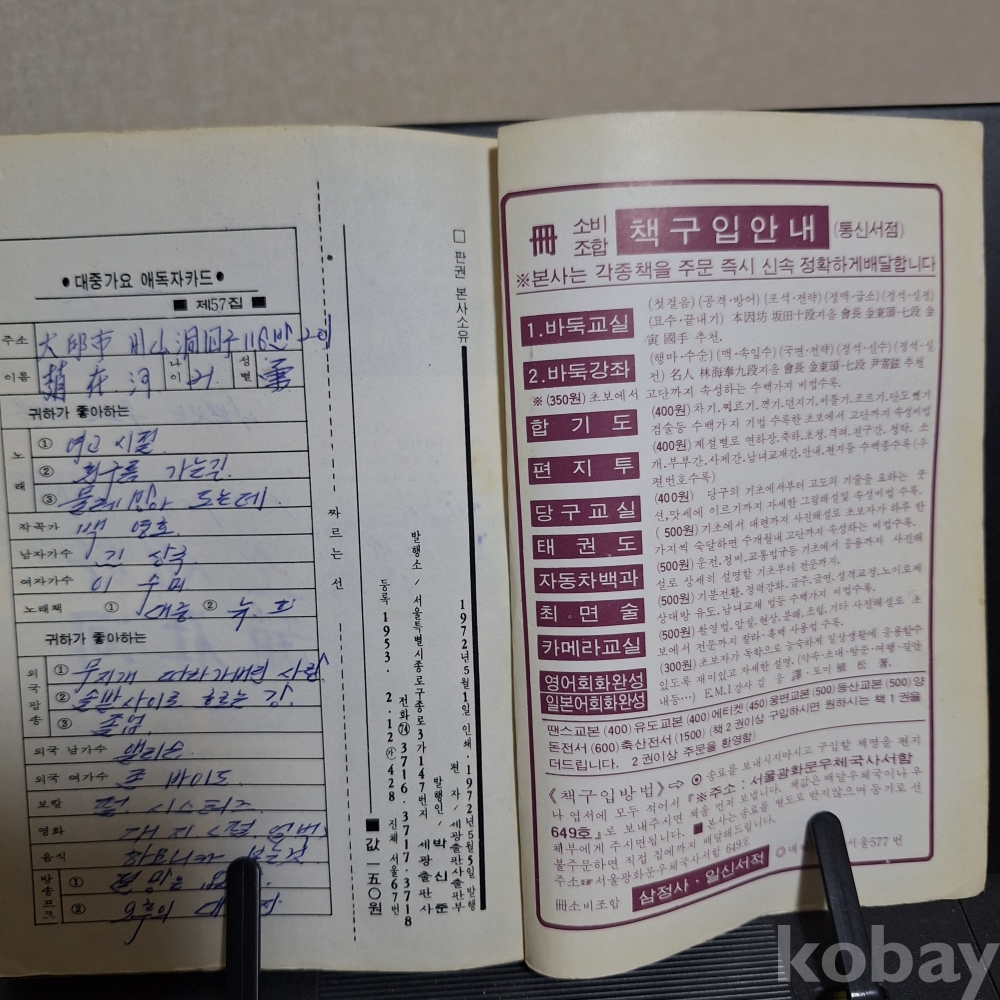 ●대중가요 애독자카드●
■ 제57집 ■
주소 大邱市
이름 趙在河 나이 성별
귀하가 좋아하는
노래
① 여고시절
② 흰구름 가는길
③ 물레방아 도는데
작곡가 백영호
남자가수 김상국
여자가수 이수미
노래책 ① 대중 ②
귀하가 좋아하는
외국팝송
① 무지개 따라가버린 사랑
② 솔밭사이로 흐르는 강
③ 졸업
외국 남가수
외국 여가수 죤 바이드
보칼 펄 시스터즈
영화
음식 하모니카
방송프로
①
② 오후의
짜르는 선
□ 판권 본사소유
1972년5월1일 인쇄·1972년5월5일 발행
편 자/세광출판사출판부
발행인/박 신 준
발행소/서울특별시종로구종로3가147번지 세광출판사
전화 74 3716·3717·3718
등록 1953. 2. 12 428 진체 서울67번
■값 一五0원
冊 소비조합 책구입안내 (통신서점)
※본사는 각종책을 주문 즉시 신속 정확하게배달합니다
1.바둑교실 (첫걸음) (공격·방어) (포석·전략) (정맥·급소) (정석·실전)
(묘수·끝내기) 本因坊 坂田十段지음 會長 金東頭·七段 金
寅 國手 추천.
2.바둑강좌 (행마·수순) (맥·속임수) (국면·전략) (정석·신수) (정석·실
전) 名人 林海奉九段지음 會長 金東頭·七段 尹寄鉉 추천
※ (350원) 초보에서 고단까지 속성하는 수백가지 비법수록.
합기도 (400원) 차기.찌르기.꺾기.던지기.비틀기.조르기.단도뺏기
검술등 수백가지 기법 수록한 초보에서 고단까지 속성비법
편지투 (400원) 계절별로 연하장.축하.초청.격려.친구간.청탁. 소
개.부부간.사제간.남녀교재간.안내.편지등 수백종수록(우
편번호수록)
당구교실 (400원) 당구의 기초에서부터 고도의 기술을 요하는 쿳
션,맛세에 이르기까지 자세한 그림해설및 속성비법 수록.
태권도 (500원) 기초에서 대련까지 사진해설로 초보자가 하루 한
가지씩 숙달하면 수개월내 고단까지 속성하는 비법수록.
자동차백과 (500원) 운전.정비.교통법규등 기초에서 응용까지 사진해
설로 상세히 설명함 기초부터 전문까지.
최면술 (500원) 기분전환.정력강화.금주.금연.성격교정.노이로제
상대방 유도.남녀교재 법등 수백가지 비법수록.
카메라교실 (500원) 촬영법.암실.현상.분해.조립.기타 사진해설로 초
보에서 전문까지 칼라·흑백 사용법 수록.
영어회화완성
일본어회화완성
(300원) 초보자가 독학으로 능숙하게 일상생활에 응용할수
있도록 재미있고 자세한 설명. (약속·초대·방문·여행·길안
내등…) E.M.I강사 김 웅 澤·토미 植 松 著.
땐스교본 (400) 유도교본 (400) 에티켓 (450) 웅변교본 (500) 등산교본 (500) 양
돈전서 (600) 축산전서 (1500) (책 2권이상 구입하시면 원하시는 책 1권을
더드립니다. 2권이상 주문을 환영함)
《책구입방법》⇨ ⊙ 송료를 보내시지마시고 구입할 책명을 편지
나 엽서에 모두 적어서 『※주소:서울광화문우체국사서함
649호』로 보내주시면 책을 먼저 보냅니다. 책값은 배달우체국이나 우
체부에게 주시면됩니다. ■ 본사는 송료를 별도로 받지않으며 등기로 선
불주문하면 직접 집에까지 배달해드립니다.
주소☞서울광화문우체국사서함 649호 서울577 번
冊소비조합 삼정사·일신서적
kobay